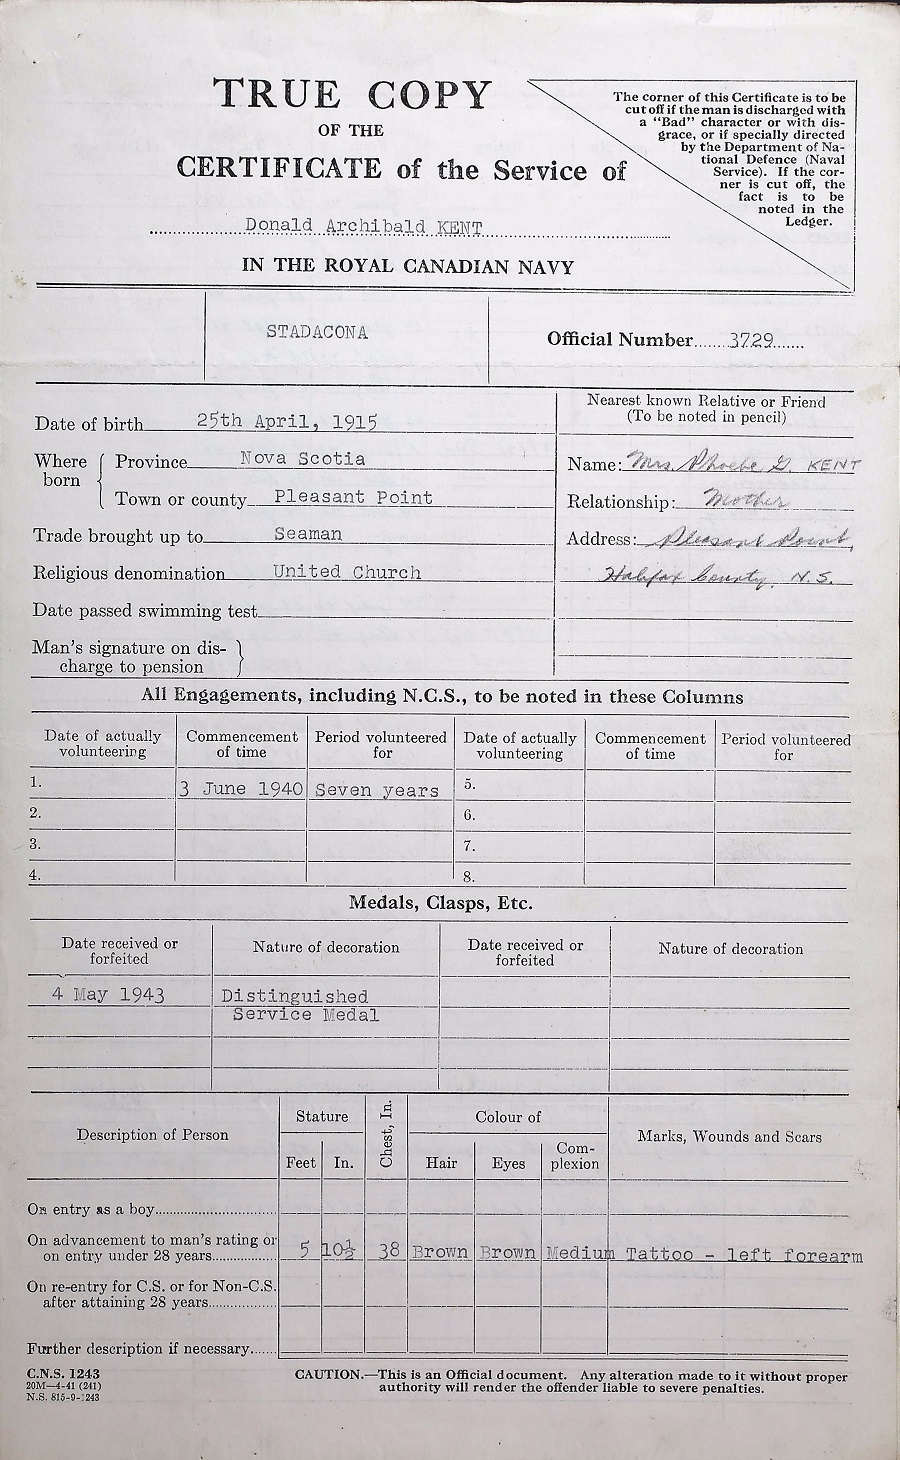 TRUE COPY
OF THE
CERTIFICATE of the Service of
Donald Archibald KENT
IN THE ROYAL CANADIAN NAVY
The corner of this Certificate is to be
cut off if the man is discharged with
a "Bad" character or with dis-
grace, or if specially directed
by the Department of Na-
tional Defence (Naval
Service). If the cor-
ner is cut off, the
fact is to be
noted in the
Ledger.
STADACONA
Official Number.......3729......
Date of birth 25th April, 1915
Where born Province Nova Scotia
Town or county Pleasant Point
Trade brought up to Seaman
Religious denomination United Church
Date passed swimming test
Man's signature on dis-
charge to pension
Nearest known Relative or Friend
(To be noted in pencil)
Name: Mrs. Phoebe G. KENT
Relationship: Mother
Address: Pleasant Point,
Halifax County, N.S.
All Engagements, including N.C.S., to be noted in these Columns
Date of actually volunteering Commencement of time Period volunteered for Date of actually volunteering Commencement of time Period volunteered for
1. 3 June 1940 Seven years 5.
2. 6.
3. 7.
4. 8.
Medals, Clasps, Etc.
Date received or forfeited Nature of decoration Date received or forfeited Nature of decoration
4 May 1943 Distinguished
Service Medal
Description of Person Stature Chest, In. Colour of Marks, Wounds and Scars
Feet In. Hair Eyes Com-plexion
On entry as a boy..............................
On advancement to man's rating or
on entry under 28 years............... 5 10½ 38 Brown Brown Medium Tattoo - left forearm
On re-entry for C.S. or for Non-C.S.
after attaining 28 years................
Further description if necessary......
C.N.S. 1243
20M—4-41 (241)
N.S. 815-9-1243
CAUTION.—This is an Official document. Any alteration made to it without proper
authority will render the offender liable to severe penalties.